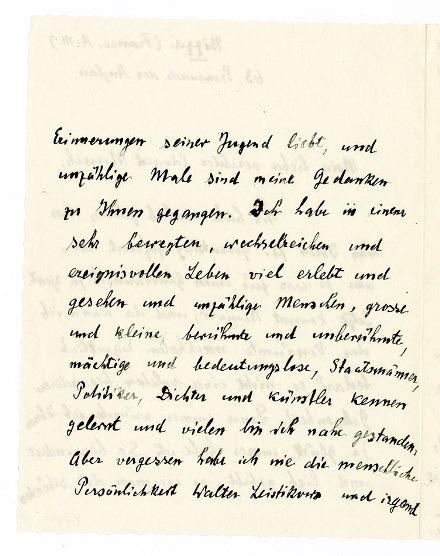 Erinnerungen seiner Jugend liebt, und
unzählige Male sind meine Gedanken
zu Ihnen gegangen. Ich habe in einem
sehr bewegten, wechselreichen und
ereignisvollen Leben viel erlebt und
gesehen und unzählige Menschen, grosse
und kleine, berühmte und unberühmte,
mächtige und bedeutungslose, Staatsmänner,
Politiker, Dichter und Künstler kennen
gelernt und vielen bin ich nahe gestanden.
Aber vergessen habe ich nie die menschliche
Persönlichkeit Walter Leistikows und irgend